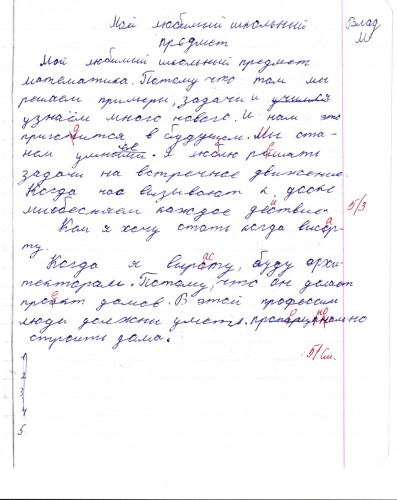 Мой любимый школьный
предмет
Влад
М
Мой любимый школьный предмет
математика. Потому что там мы
решаем примеры, задачи и учимся
узнаём много нового. И нам это
пригодится в будущем. Мы ста-
нем умнее. Я люблю решать
задачи на встречное движение.
Когда нас визывают к доске
мы каждое действие.
5/3
Кем я хочу стать когда висор-
ту.
Когда я вирасту, буду архи-
тектором. Потому, что он делает
проект домов. В этой професии
люди должни уметь
строить дома.
5/см.
1
2
3
4
5